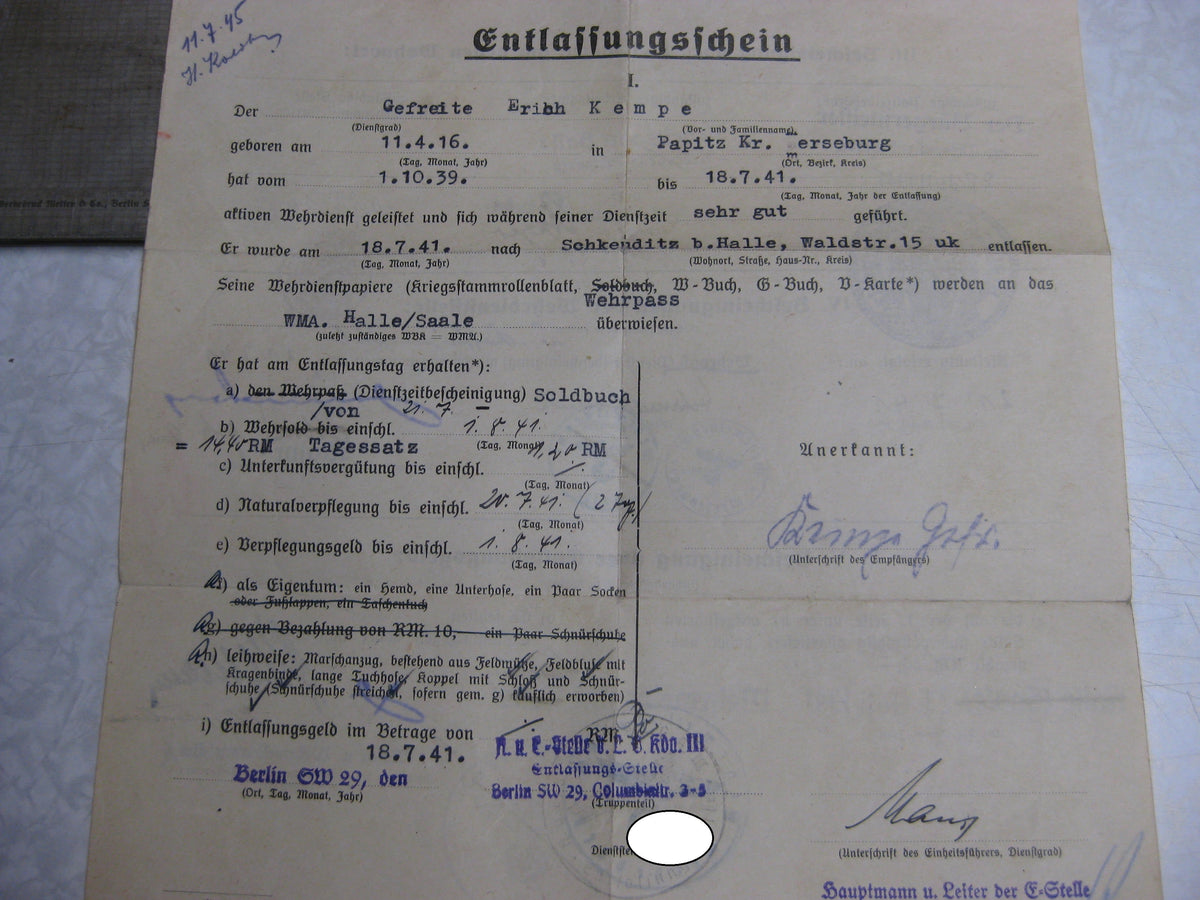 11.7.45
Entlassungsschein
I.
Der Gefreite Erich Kempe
(Dienstgrad) (Vor- und Familienname)
geboren am 11.4.16. in Papitz Kr. merseburg
(Tag, Monat, Jahr) (Ort, Bezirk, Kreis)
hat vom 1.10.39. bis 18.7.41.
(Tag, Monat, Jahr der Entlassung)
aktiven Wehrdienst geleistet und sich während seiner Dienstzeit sehr gut geführt.
Er wurde am 18.7.41. nach Schkeuditz b.Halle, Waldstr.15 uk entlassen.
(Tag, Monat, Jahr) (Wohnort, Straße, Haus-Nr., Kreis)
Seine Wehrdienstpapiere (Kriegsstammrollenblatt, Soldbuch, W-Buch, G-Buch, V-Karte*) werden an das
Wehrpass
WMA. Halle/Saale überwiesen.
(zuletzt zuständiges WBK = WMA.)
Er hat am Entlassungstag erhalten*):
a) den Wehrpaß (Dienstzeitbescheinigung) Soldbuch
/von 21.7. –
b) Wehrsold bis einschl. 1.8.41.
= 14,40 RM Tagessatz (Tag, Monat) 1,20 RM
c) Unterkunftsvergütung bis einschl.
(Tag, Monat)
d) Naturalverpflegung bis einschl. 20.7.41. (2
(Tag, Monat)
e) Verpflegungsgeld bis einschl. 1.8.41.
(Tag, Monat)
f) als Eigentum: ein Hemd, eine Unterhose, ein Paar Socken
oder Fußlappen, ein Taschentuch
g) gegen Bezahlung von RM. 10, ein Paar Schnürschuhe
h) leihweise: Marschanzug, bestehend aus Feldmütze, Feldbluse mit
Kragenbinde, lange Tuchhose, Koppel mit Schloß und Schnür-
schuhe (Schnürschuhe streichen, sofern gem. g) käuflich erworben)
i) Entlassungsgeld im Betrage von RM
Anerkannt:
(Unterschrift des Empfängers)
18.7.41.
Berlin SW 29, den
(Ort, Tag, Monat, Jahr)
Kdo. III
Entlassungs-Stelle
Berlin SW 29, Columbiastr. 3-5
(Truppenteil)
(Unterschrift des Einheitsführers, Dienstgrad)
Hauptmann u. Leiter der E-Stelle